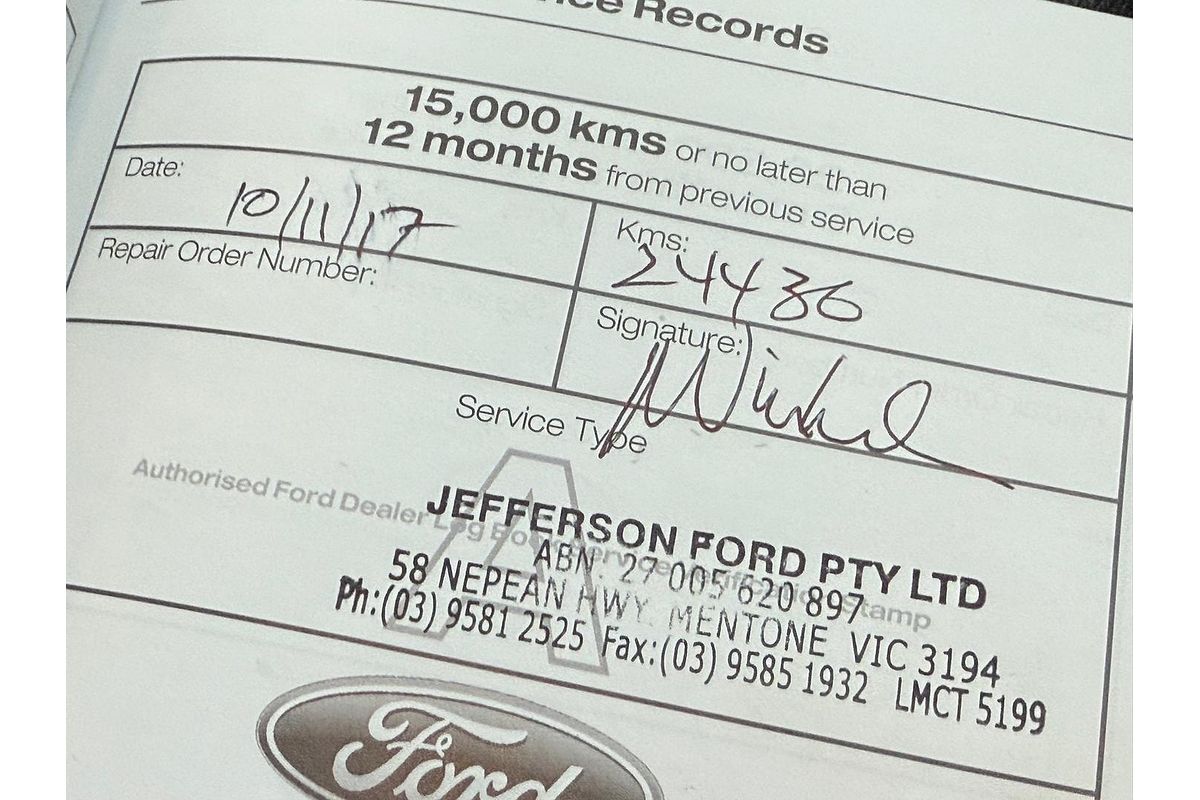 ce Records
15,000 kms or no later than
12 months from previous service
Date:
10/11/17
Kms:
24436
Repair Order Number:
Signature:
Service Type
A
Authorised Ford Dealer Log Book Service Verification Stamp
JEFFERSON FORD PTY LTD
ABN. 27 005 620 897
58 NEPEAN HWY. MENTONE VIC 3194
Ph:(03) 9581 2525 Fax:(03) 9585 1932 LMCT 5199
Ford